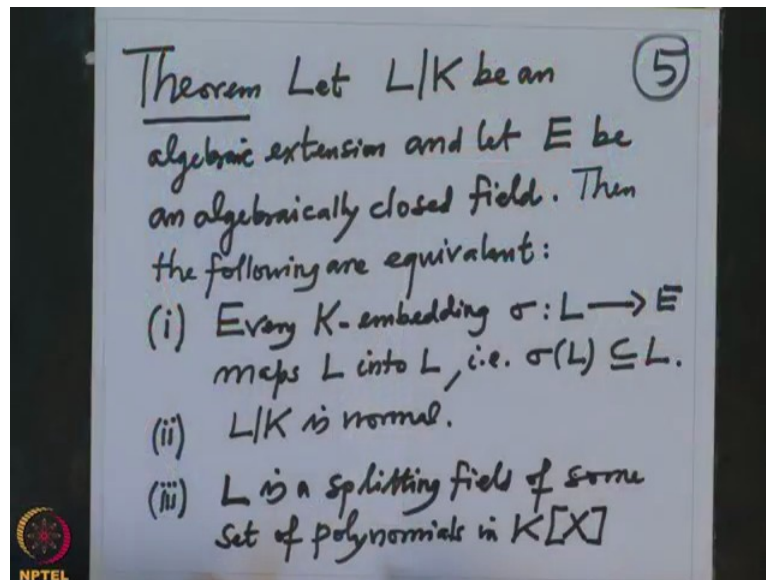 Theorem Let L|K be an ⑤
algebraic extension and let E be
an algebraically closed field. Then
the following are equivalent:
(i) Every K-embedding σ: L ⟶ E
maps L into L, i.e. σ(L) ⊆ L.
(ii) L|K is normal.
(iii) L is a splitting field of some
set of polynomials in K[X]
NPTEL